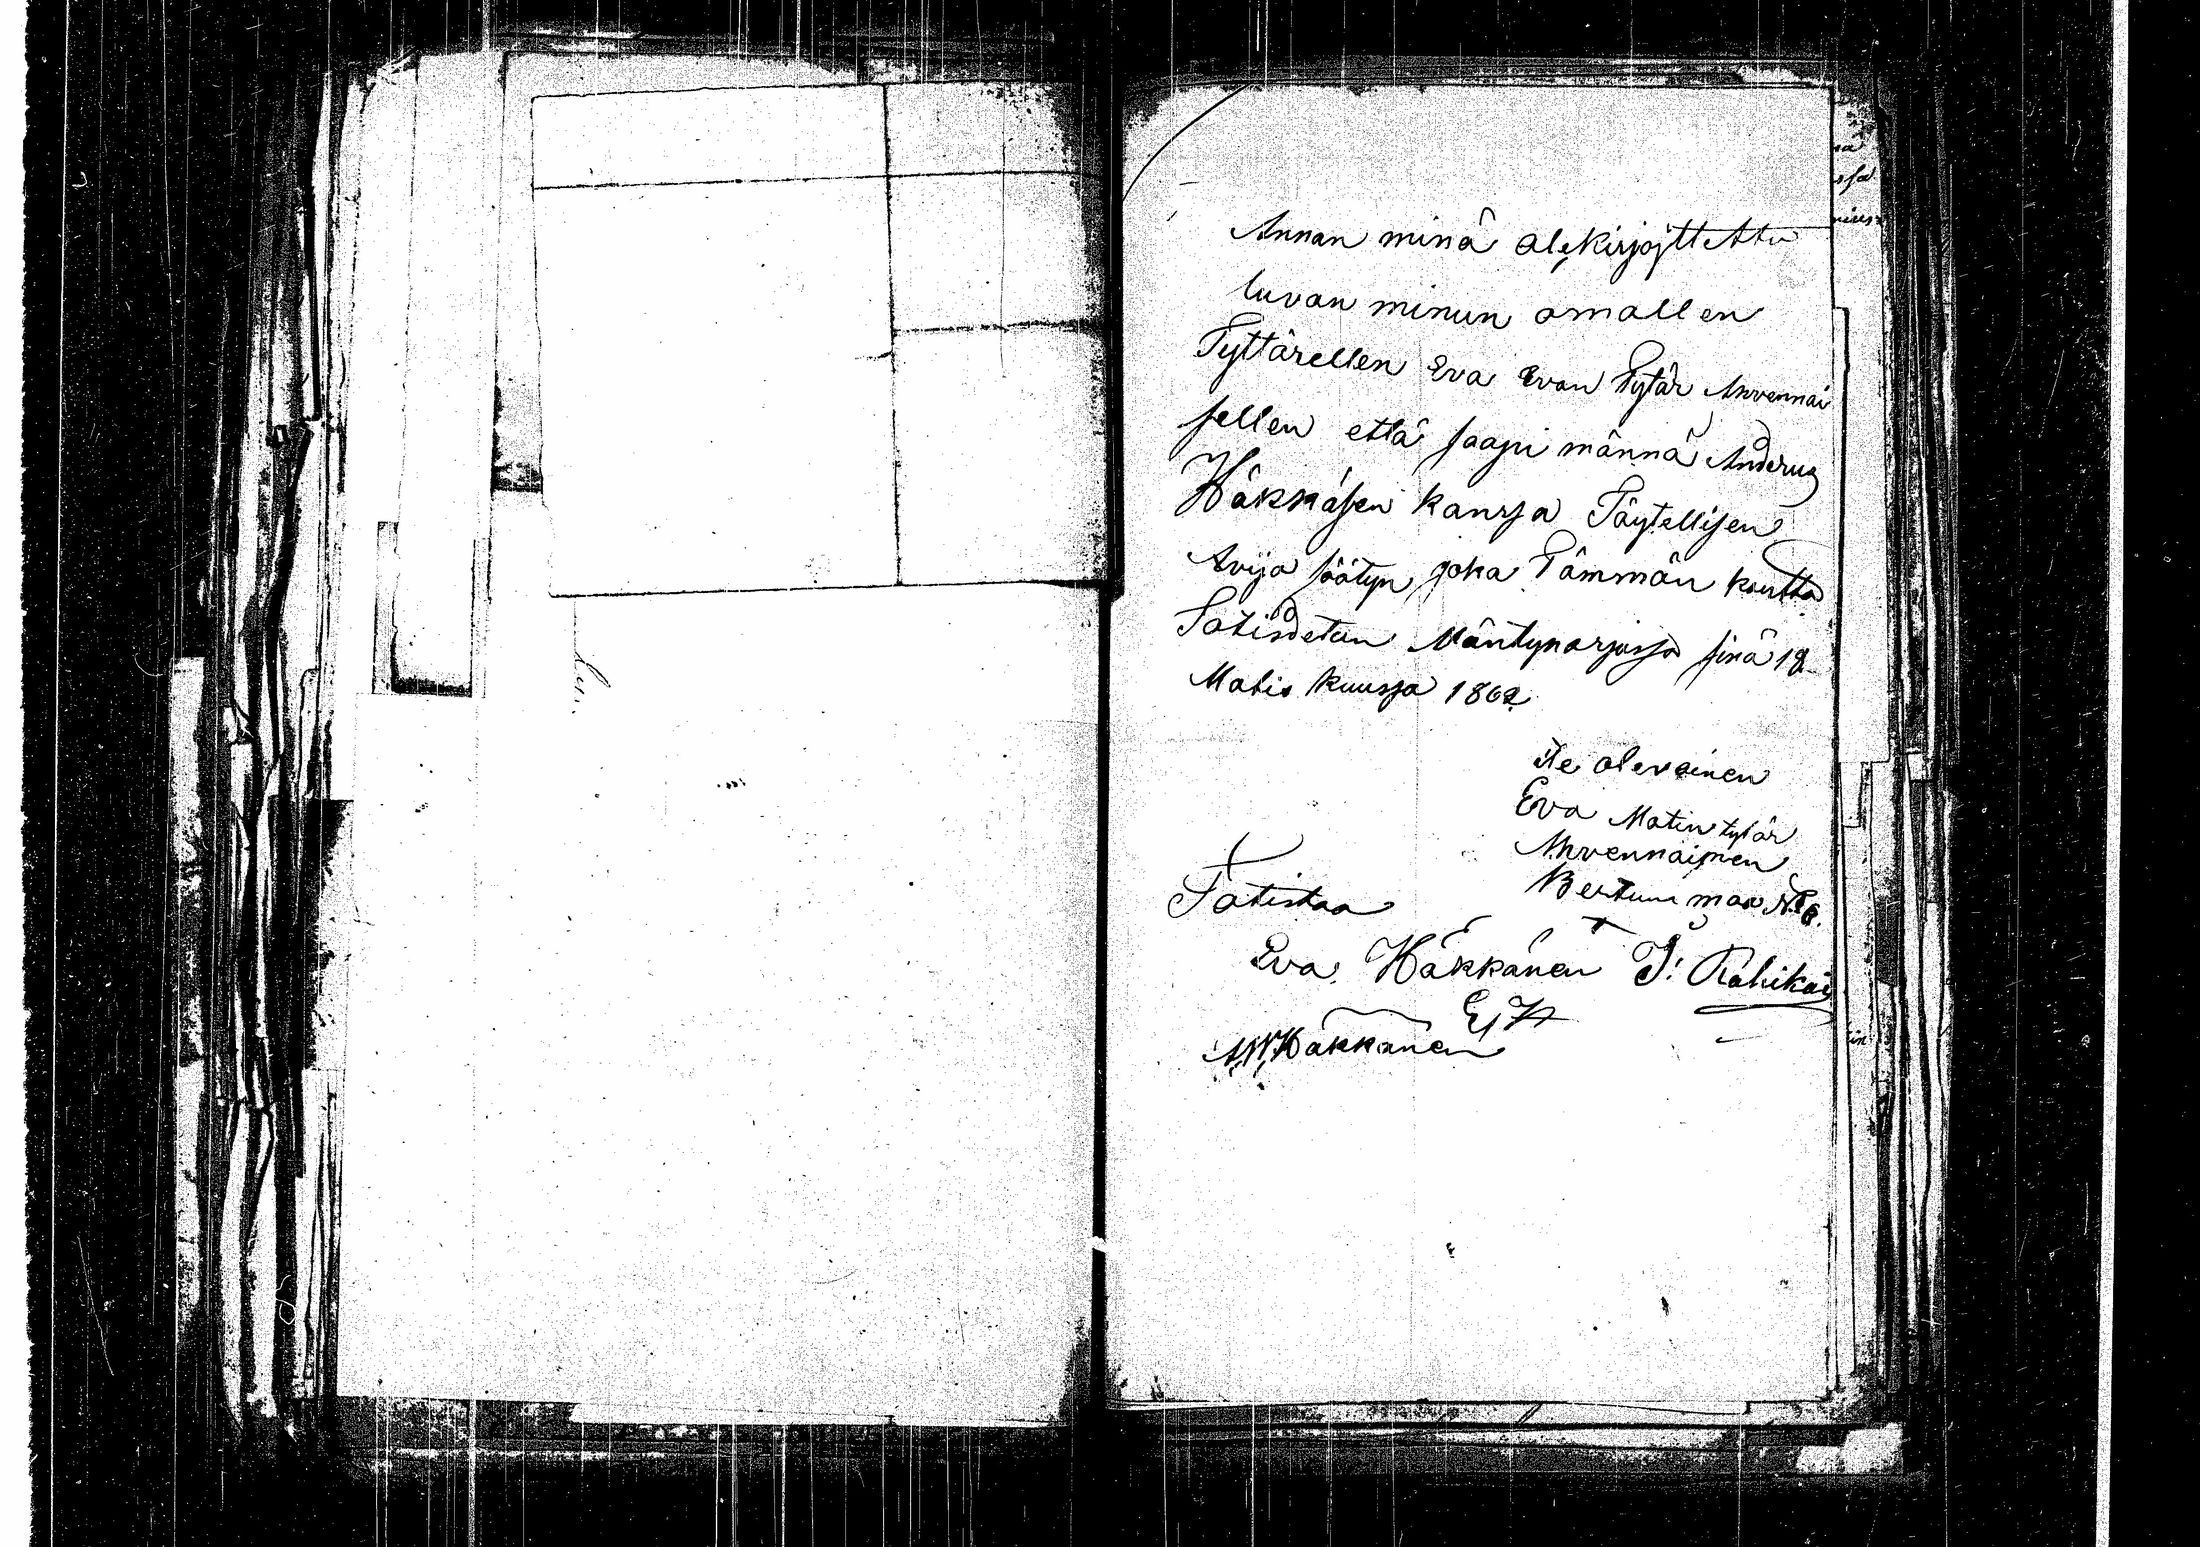 Annan minä alekirjojttettu
luvan minun omallen
Tyttärellen Eva Evan Tytär Ahvennai
sellen että saapi männä Anderus
Häkkäsen kanssa Täytellisen
Avija säätyn joka Tämmän kautta
Totisdetan Mäntynarjussa sinä 18
Matis kuussa 1862
Ite olevainen
Eva Matin tytär
Ahvennainen
Totistaa
Eva Häkkänen J: Rahikai
E H
A,W,Häkkänen